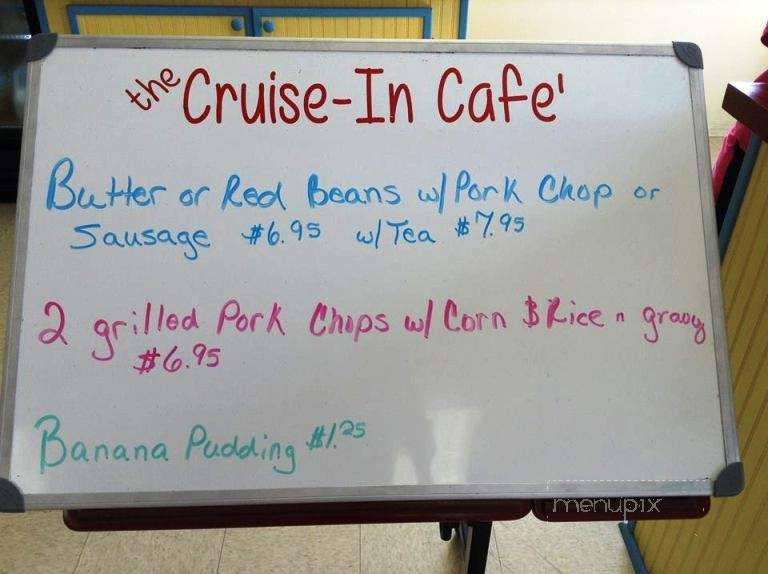 the Cruise-In Cafe'
Butter or Red Beans w/ Pork Chop or
Sausage $6.95 w/ Tea $7.95
2 grilled Pork Chops w/ Corn $ Rice n gravy
$6.95
Banana Pudding $1.25
menupix